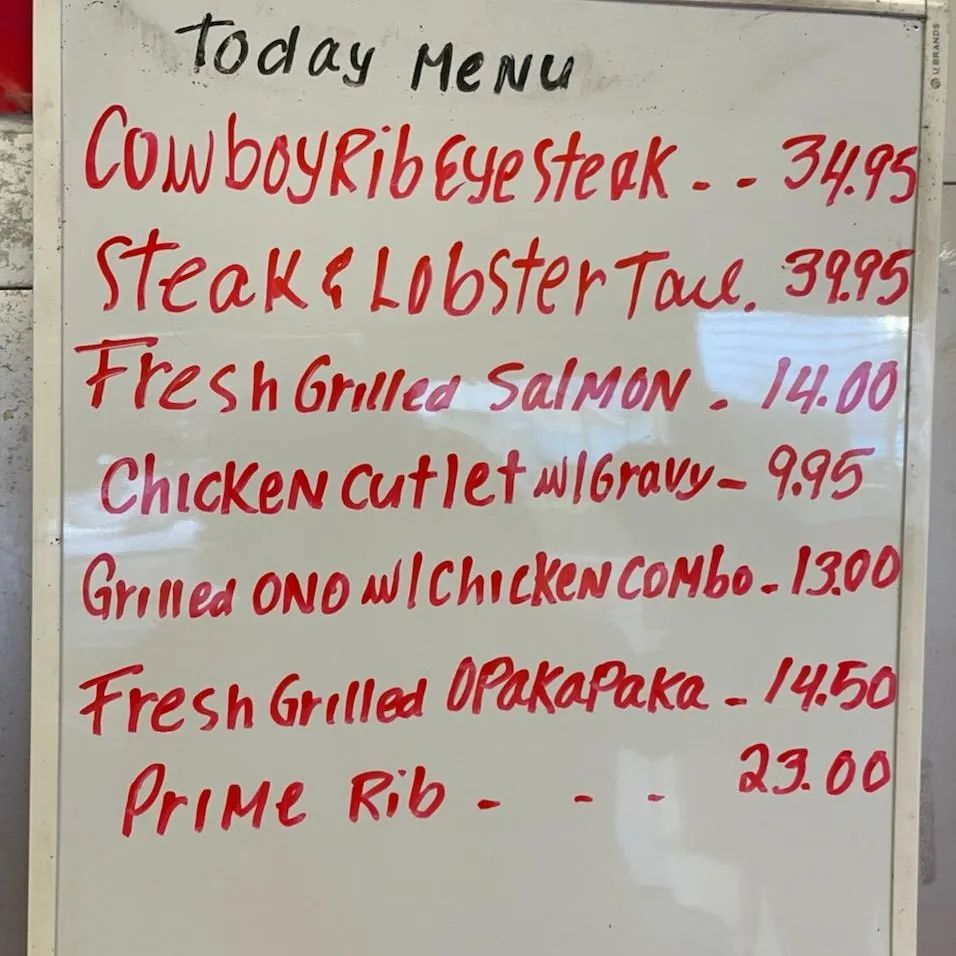 Today Menu
U BRANDS
Cowboy Rib Eye Steak - - 34.95
Steak & Lobster Tail. 39.95
Fresh Grilled Salmon - 14.00
Chicken Cutlet w/Gravy - 9.95
Grilled ONO w/Chicken Combo - 13.00
Fresh Grilled Opakapaka - 14.50
Prime Rib - - - 23.00